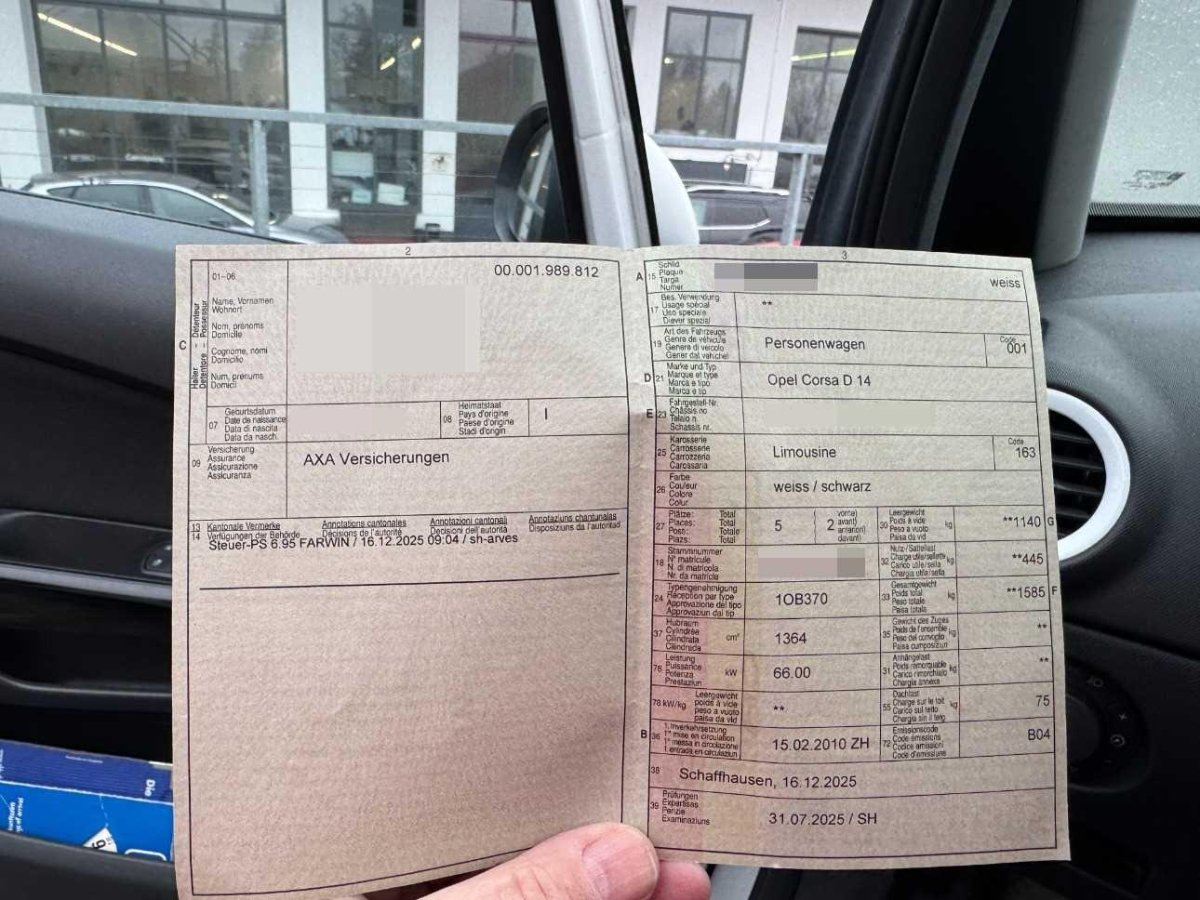 2
01-06
00.001.989.812
C
Détenteur
Possessur
Halter
Detentore
Name, Vornamen
Wohnort
Nom, prénoms
Domicile
Cognome, nomi
Domicilio
Num, prenums
Domicil
07
Geburtsdatum
Date de naissance
Data di nascita
Data da nasch.
08
Heimatstaat
Pays d'origine
Paese d'origine
Stadi d'origin
I
09
Versicherung
Assurance
Assicurazione
Assicuranza
AXA Versicherungen
13
14
Kantonale Vermerke
Verfügungen der Behörde
Annotations cantonales
Décisions de l'autorité
Annotazioni cantonali
Decisioni dell'autorità
Annotaziuns chantunalas
Disposiziuns da l'autoritad
Steuer-PS 6.95 FARWIN / 16.12.2025 09:04 / sh-arves
3
A
15
Schild
Plaque
Targa
Numer
weiss
17
Bes. Verwendung
Usage spécial
Uso speciale
Diever spezial
**
19
Art des Fahrzeugs
Genre de véhicule
Genere di veicolo
Gener dal vehichel
Personenwagen
Code
001
D
21
Marke und Typ
Marque et type
Marca e tipo
Marca e tip
Opel Corsa D 14
E
23
Fahrgestell-Nr.
Châssis no
Telaio n.
Schassis nr.
25
Karosserie
Carrosserie
Carrozzeria
Carossaria
Limousine
Code
163
26
Farbe
Couleur
Colore
Colur
weiss / schwarz
27
Plätze: Total
Places: Total
Posti: Totale
Plazs: Total
5
( 2
vorne)
avant)
anteriori)
davant)
30
Leergewicht
Poids à vide
Peso a vuoto
Paisa da vid
kg
**1140
G
18
Stammnummer
N° matricule
N. di matricola
Nr. da matricla
32
Nutz-/Sattellast
Charge utile/sellette
Carico utile/sella
Chargia utila/sella
kg
**445
24
Typengenehmigung
Réception par type
Approvazione del tipo
Approvaziun dal tip
1OB370
33
Gesamtgewicht
Poids total
Peso totale
Paisa totala
kg
**1585
F
37
Hubraum
Cylindrée
Cilindrata
Cilindrada
cm³
1364
35
Gewicht des Zuges
Poids de l'ensemble
Peso del convoglio
Paisa cumposiziun
kg
**
76
Leistung
Puissance
Potenza
Prestaziun
kW
66.00
31
Anhängelast
Poids remorquable
Carico rimorchiato
Chargia annexa
kg
**
78 kW/kg
Leergewicht
poids à vide
peso a vuoto
paisa da vid
**
55
Dachlast
Charge sur le toit
Carico sul tetto
Chargia sin il tetg
kg
75
B
36
1. Inverkehrsetzung
1re mise en circulation
1a messa in circolazione
1. entrada en circulaziun
15.02.2010 ZH
72
Emissionscode
Code émissions
Codice emissioni
Code d'emissiuns
B04
38
Schaffhausen, 16.12.2025
39
Prüfungen
Expertises
Perizie
Examinaziuns
31.07.2025 / SH
Die